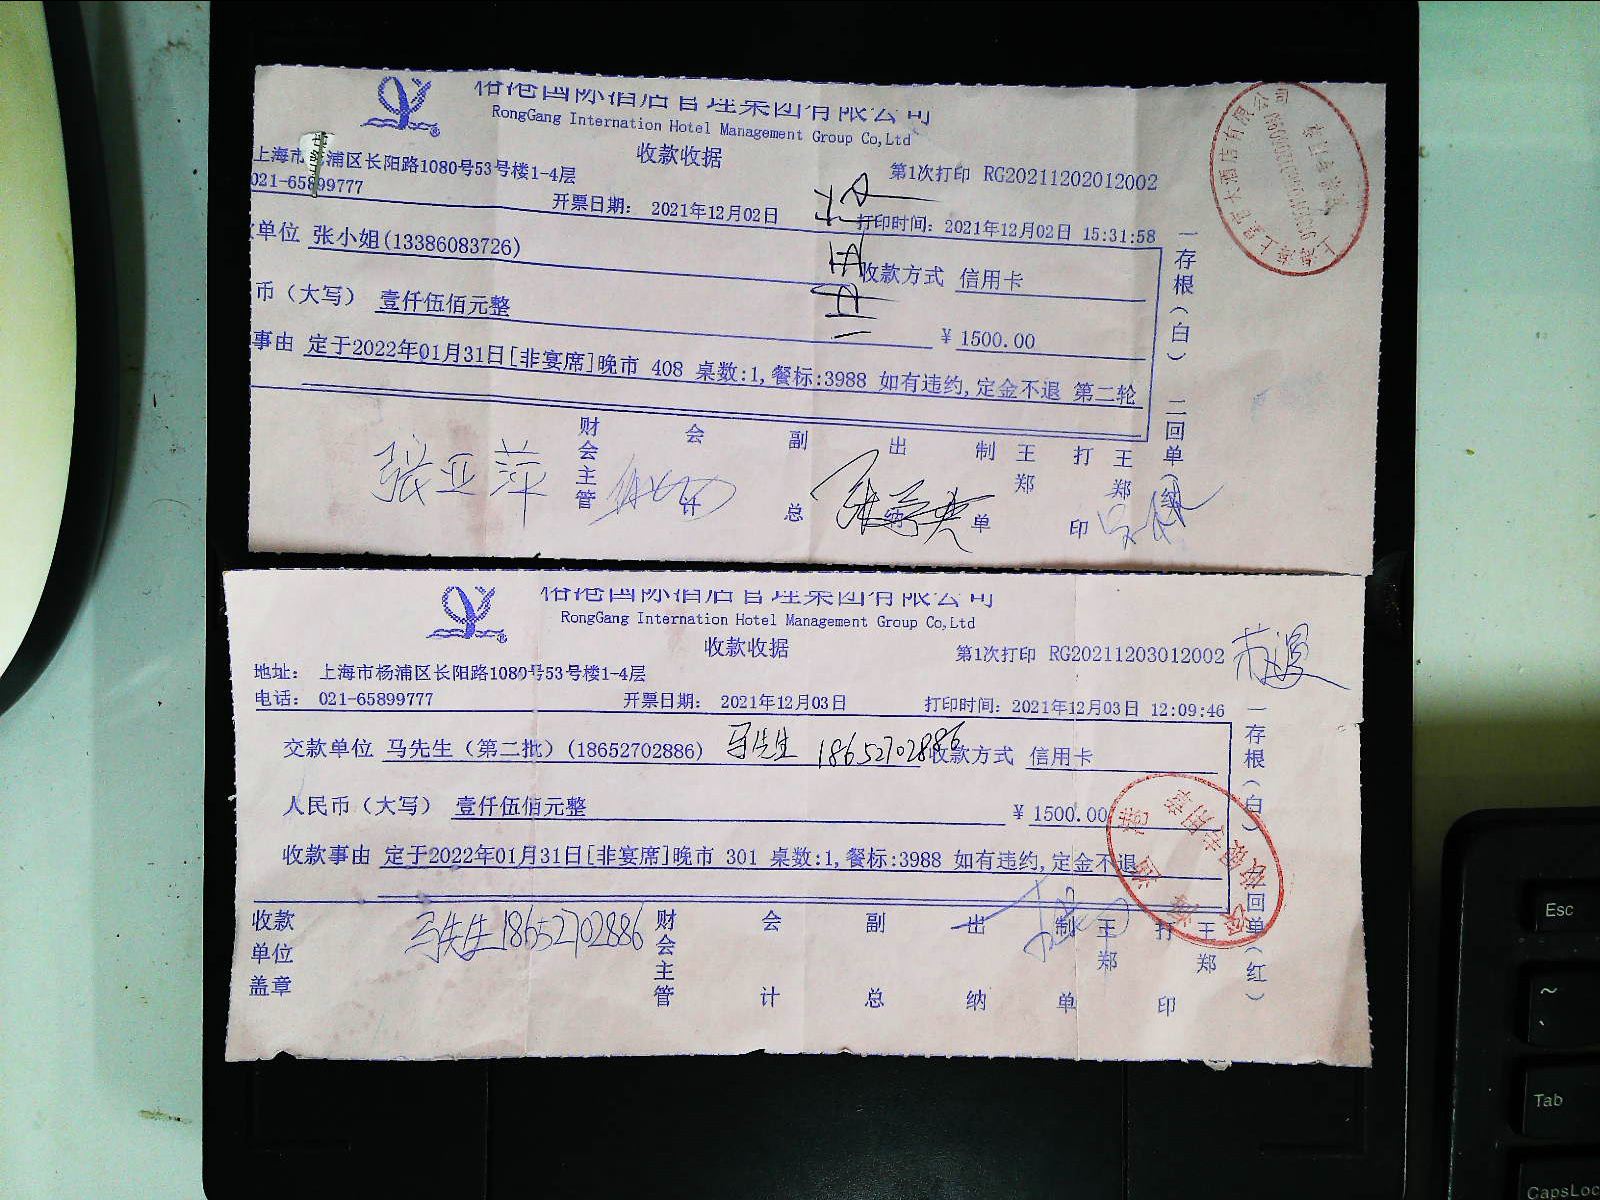 裕港国际酒店管理集团有限公司
RongGang Internation Hotel Management Group Co,Ltd
收款收据
上海市杨浦区长阳路1080号53号楼1-4层
第1次打印 RG20211202012002
021-65899777
开票日期： 2021年12月02日
打印时间：2021年12月02日 15:31:58
单位 张小姐(13386083726)
收款方式 信用卡
币（大写） 壹仟伍佰元整
¥ 1500.00
事由 定于2022年01月31日[非宴席]晚市 408 桌数:1,餐标:3988 如有违约,定金不退 第二轮
一存根（白） 二回单（红
张亚萍
财会主管 会计 副总 出纳 制单 王郑 打印 王郑
裕港国际酒店管理集团有限公司
RongGang Internation Hotel Management Group Co,Ltd
收款收据
第1次打印 RG20211203012002
地址： 上海市杨浦区长阳路1080号53号楼1-4层
电话： 021-65899777
开票日期： 2021年12月03日
打印时间：2021年12月03日 12:09:46
交款单位 马先生（第二批）(18652702886) 马先生 18652702886
收款方式 信用卡
人民币（大写） 壹仟伍佰元整
¥ 1500.00
收款事由 定于2022年01月31日[非宴席]晚市 301 桌数:1,餐标:3988 如有违约,定金不退
一存根（白） 二回单（红）
收款单位盖章
马先生18652702886
财会主管 会计 副总 出纳 制单 王郑 打印 王郑
Esc
~
Tab
CapsLoc